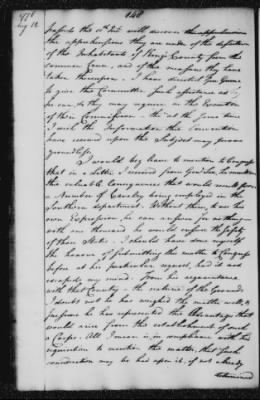 1776
Aug 12
140
passed the 10th Inst. will discover the apprehensions
the apprehensions they are under of the defection
of the Inhabitants of Kings County from the
common Cause, and of the measures they have
taken thereupon. I have directed Genl Greene
to give the Committee such assistance as
he can & they may require in the Execution
of their Commission. tho' at the same time
I wish the Information the Convention
have received upon the Subject may prove
groundless.
I would beg leave to mention to Congress
that in a Letter I received from Genl Lee, he mentions
the valuable Consequences that would result from
a Number of Cavalry being employed in the
Southern department. Without them, to use his
own Expression, he can answer for nothing —
with one thousand he would ensure the safety
of those States. I should have done myself
the honour of submitting this matter to Congress
before at his particular request, had it not
escaped my mind. from his acquaintance
with that Country & the nature of the Grounds
I doubt not he has weighed the matter well, &
presume he has represented the Advantages that
would arise from the establishment of such
a Corps. All I mean is, in compliance with his
requisition to mention the matter, that such
consideration may be had upon it, if not already
determined